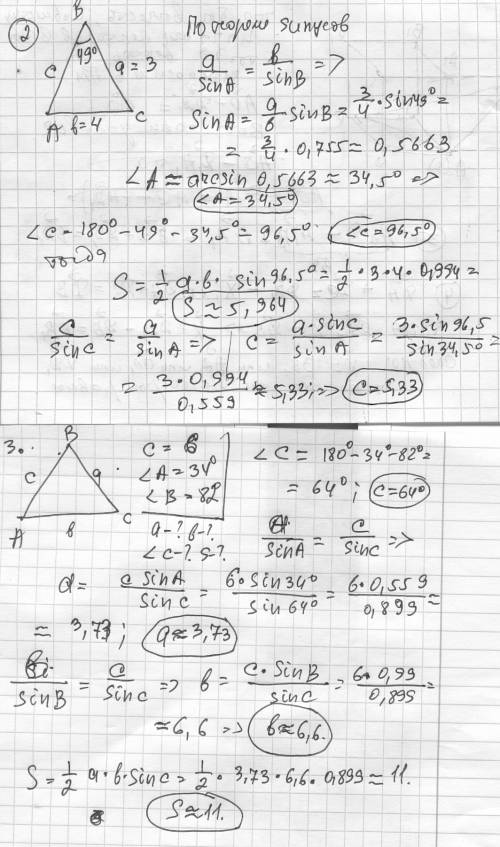 2
B
49°
c
a = 3
A
b=4
C
По теореме синусов
a/sinA = b/sinB =>
sinA = a/b sinB = 3/4 · sin49° =
= 3/4 · 0,755 ≈ 0,5663
∠A ≈ arcsin 0,5663 ≈ 34,5° =>
∠A = 34,5°
∠C = 180° - 49° - 34,5° = 96,5°
∠C = 96,5°
тогда
S = 1/2 a·b· sin96,5° = 1/2 · 3 · 4 · 0,994 =
S ≈ 5,964
c/sinC = a/sinA => c = a·sinC/sinA = 3·sin96,5/sin34,5° =
= 3·0,994/0,559 ≈ 5,33; => c = 5,33
3.
B
c
a
A
b
C
c = 6
∠A = 34°
∠B = 82°
a-? b-?
∠C-? S-?
∠C = 180° - 34° - 82° =
= 64°; C = 64°
a/sinA = c/sinC =>
a = c sinA/sinC = 6·sin34°/sin64° = 6·0,559/0,899 ≈
≈ 3,73; a ≈ 3,73
b/sinB = c/sinC => b = c·sinB/sinC = 6·0,99/0,899 =
≈ 6,6 => b ≈ 6,6.
S = 1/2 a·b·sinC = 1/2 · 3,73 · 6,6 · 0,899 ≈ 11.
S ≈ 11.